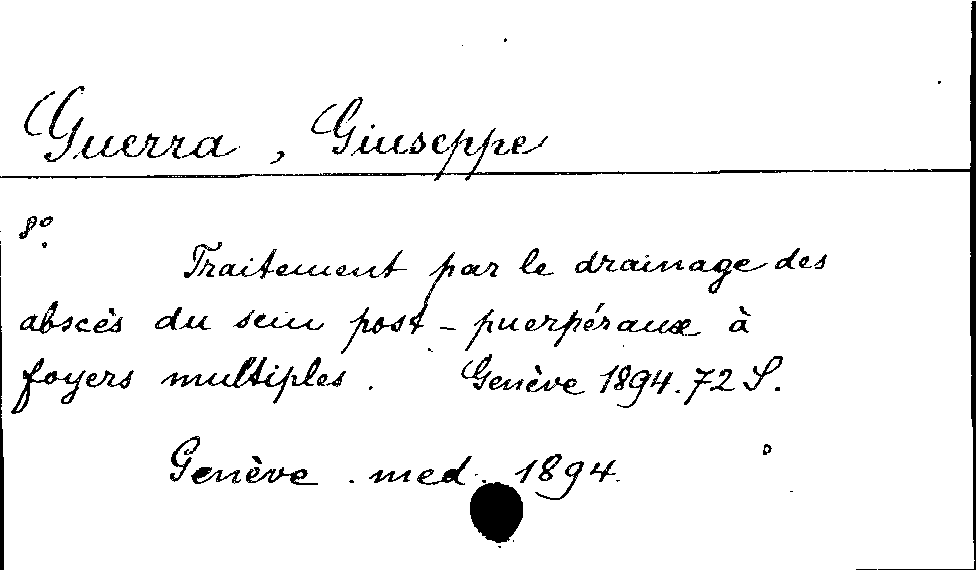 Guerra, Giuseppe
8°.
Traitement par le drainage des
abscès du sein post-puerpéraux à
foyers multiples. Genève 1894. 72 S.
Genève. med. 1894.